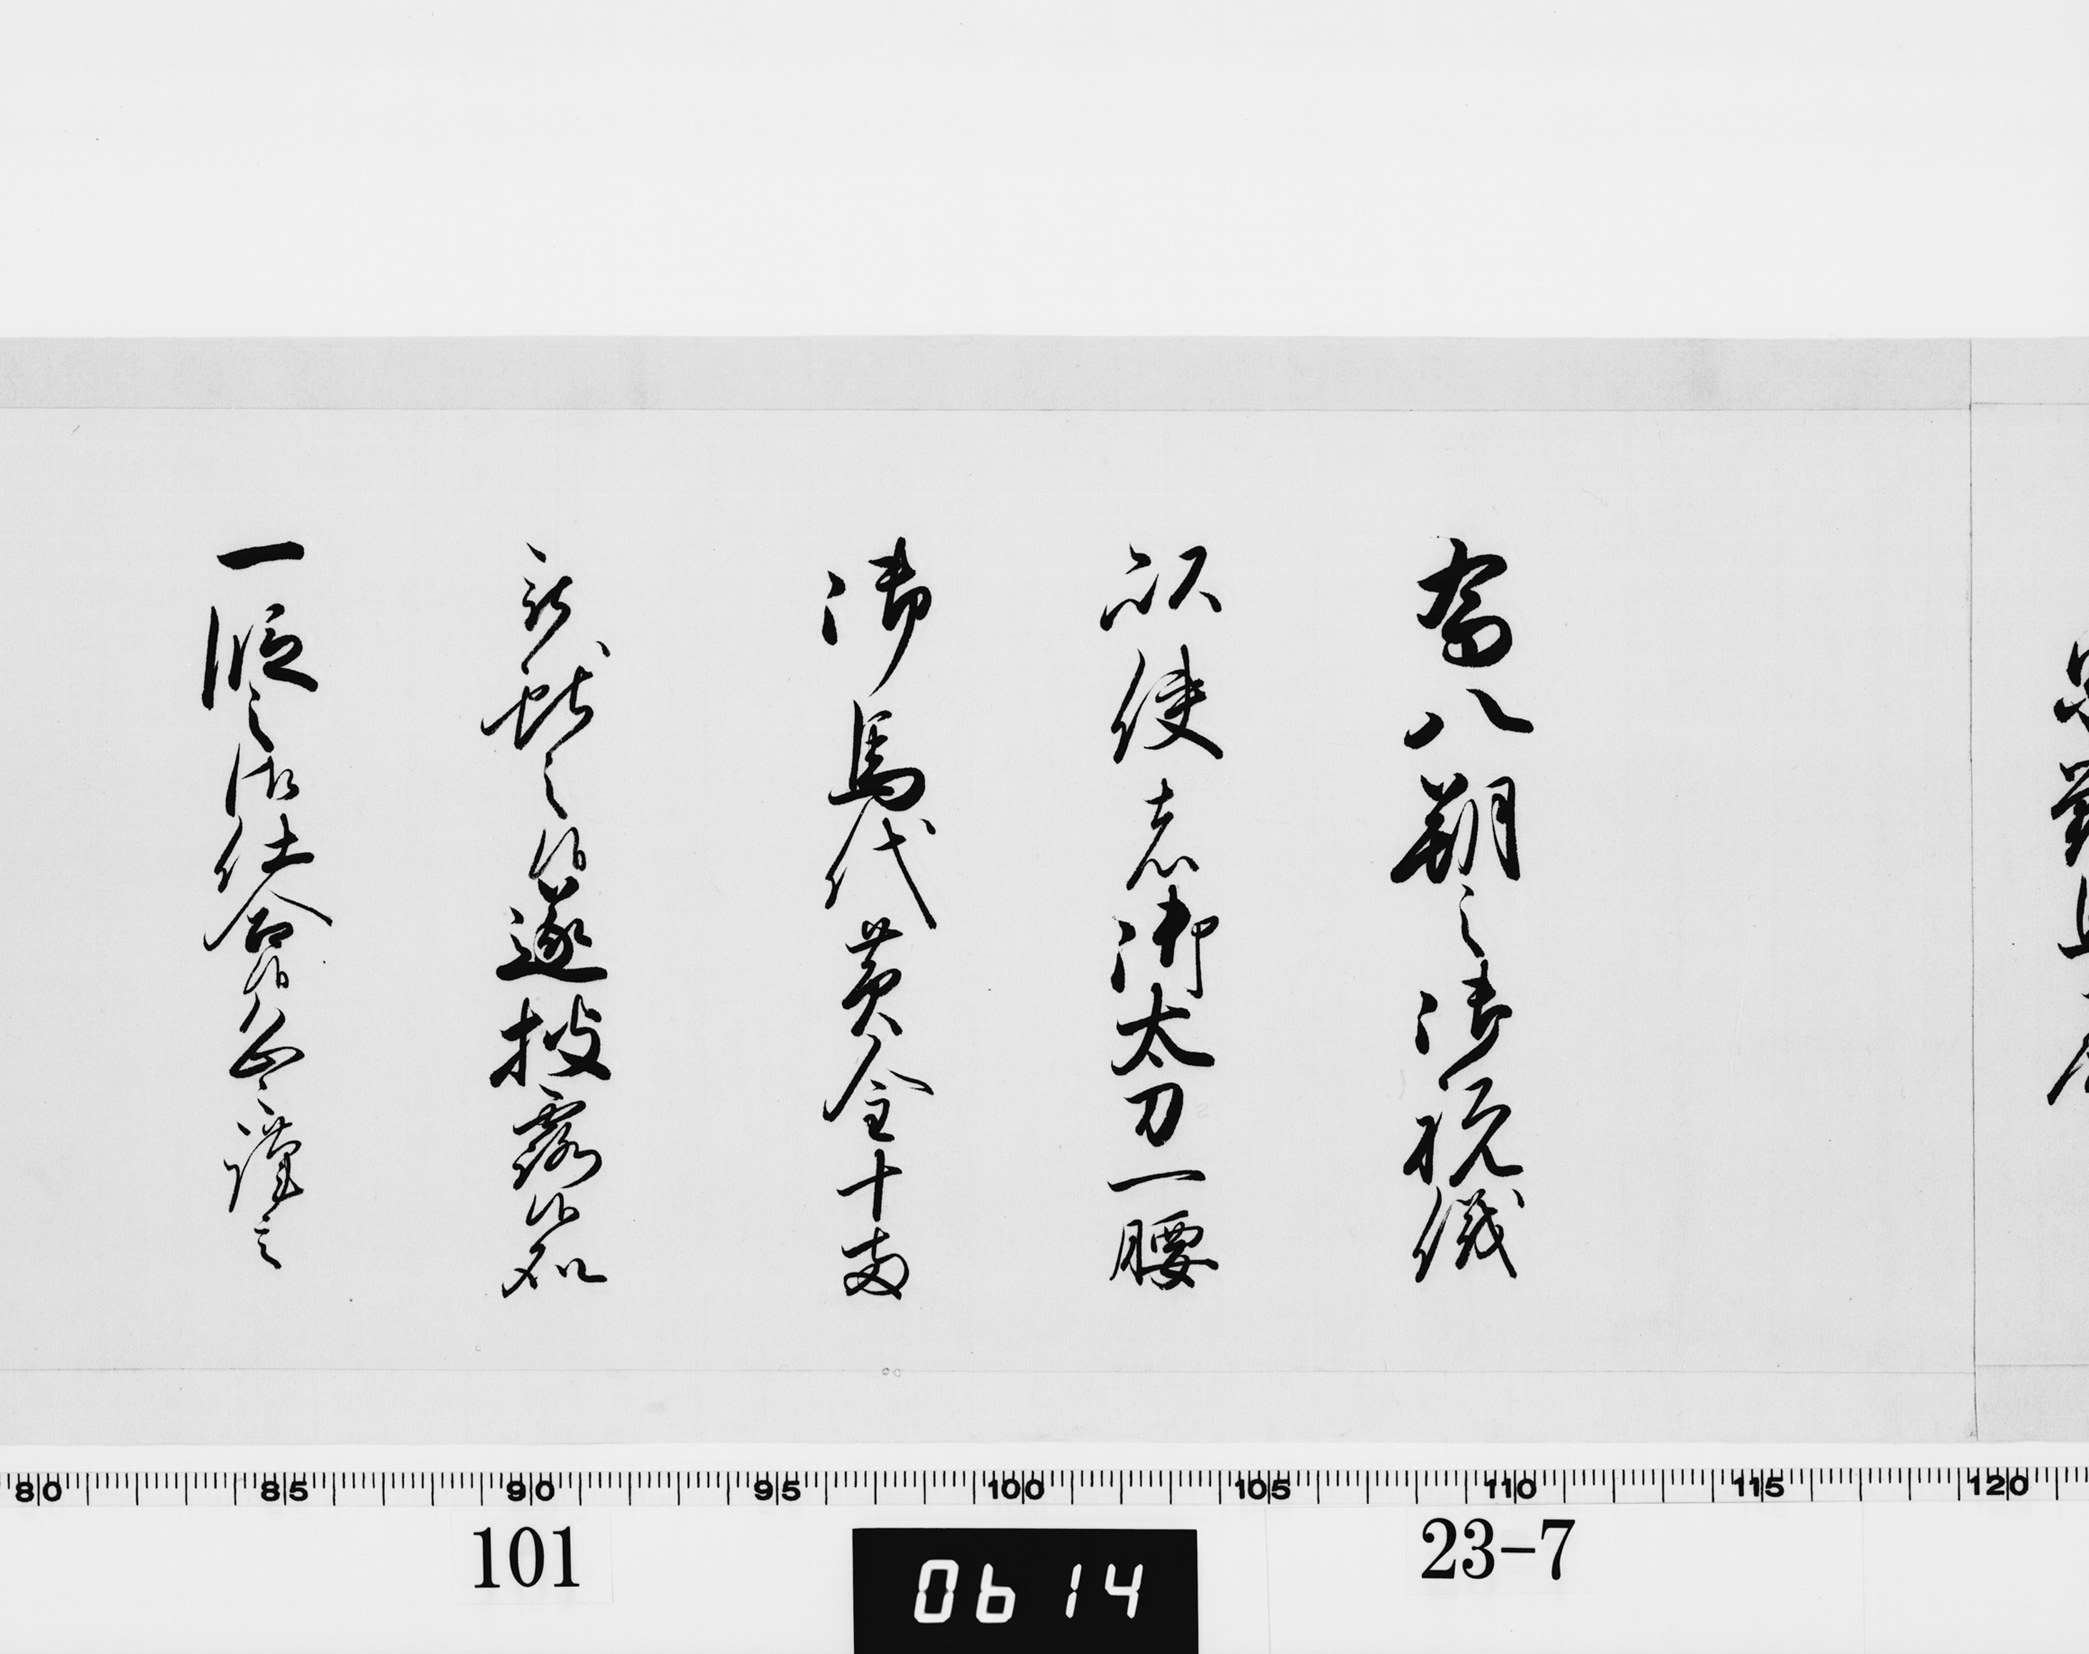 為八朔之御祝儀
以使者御太刀一腰
御馬代黄金十両
被献之候遂披露候処
一段之御仕合候恐々謹言
80 85 90 95 100 105 110 115 120
101
0614
23-7